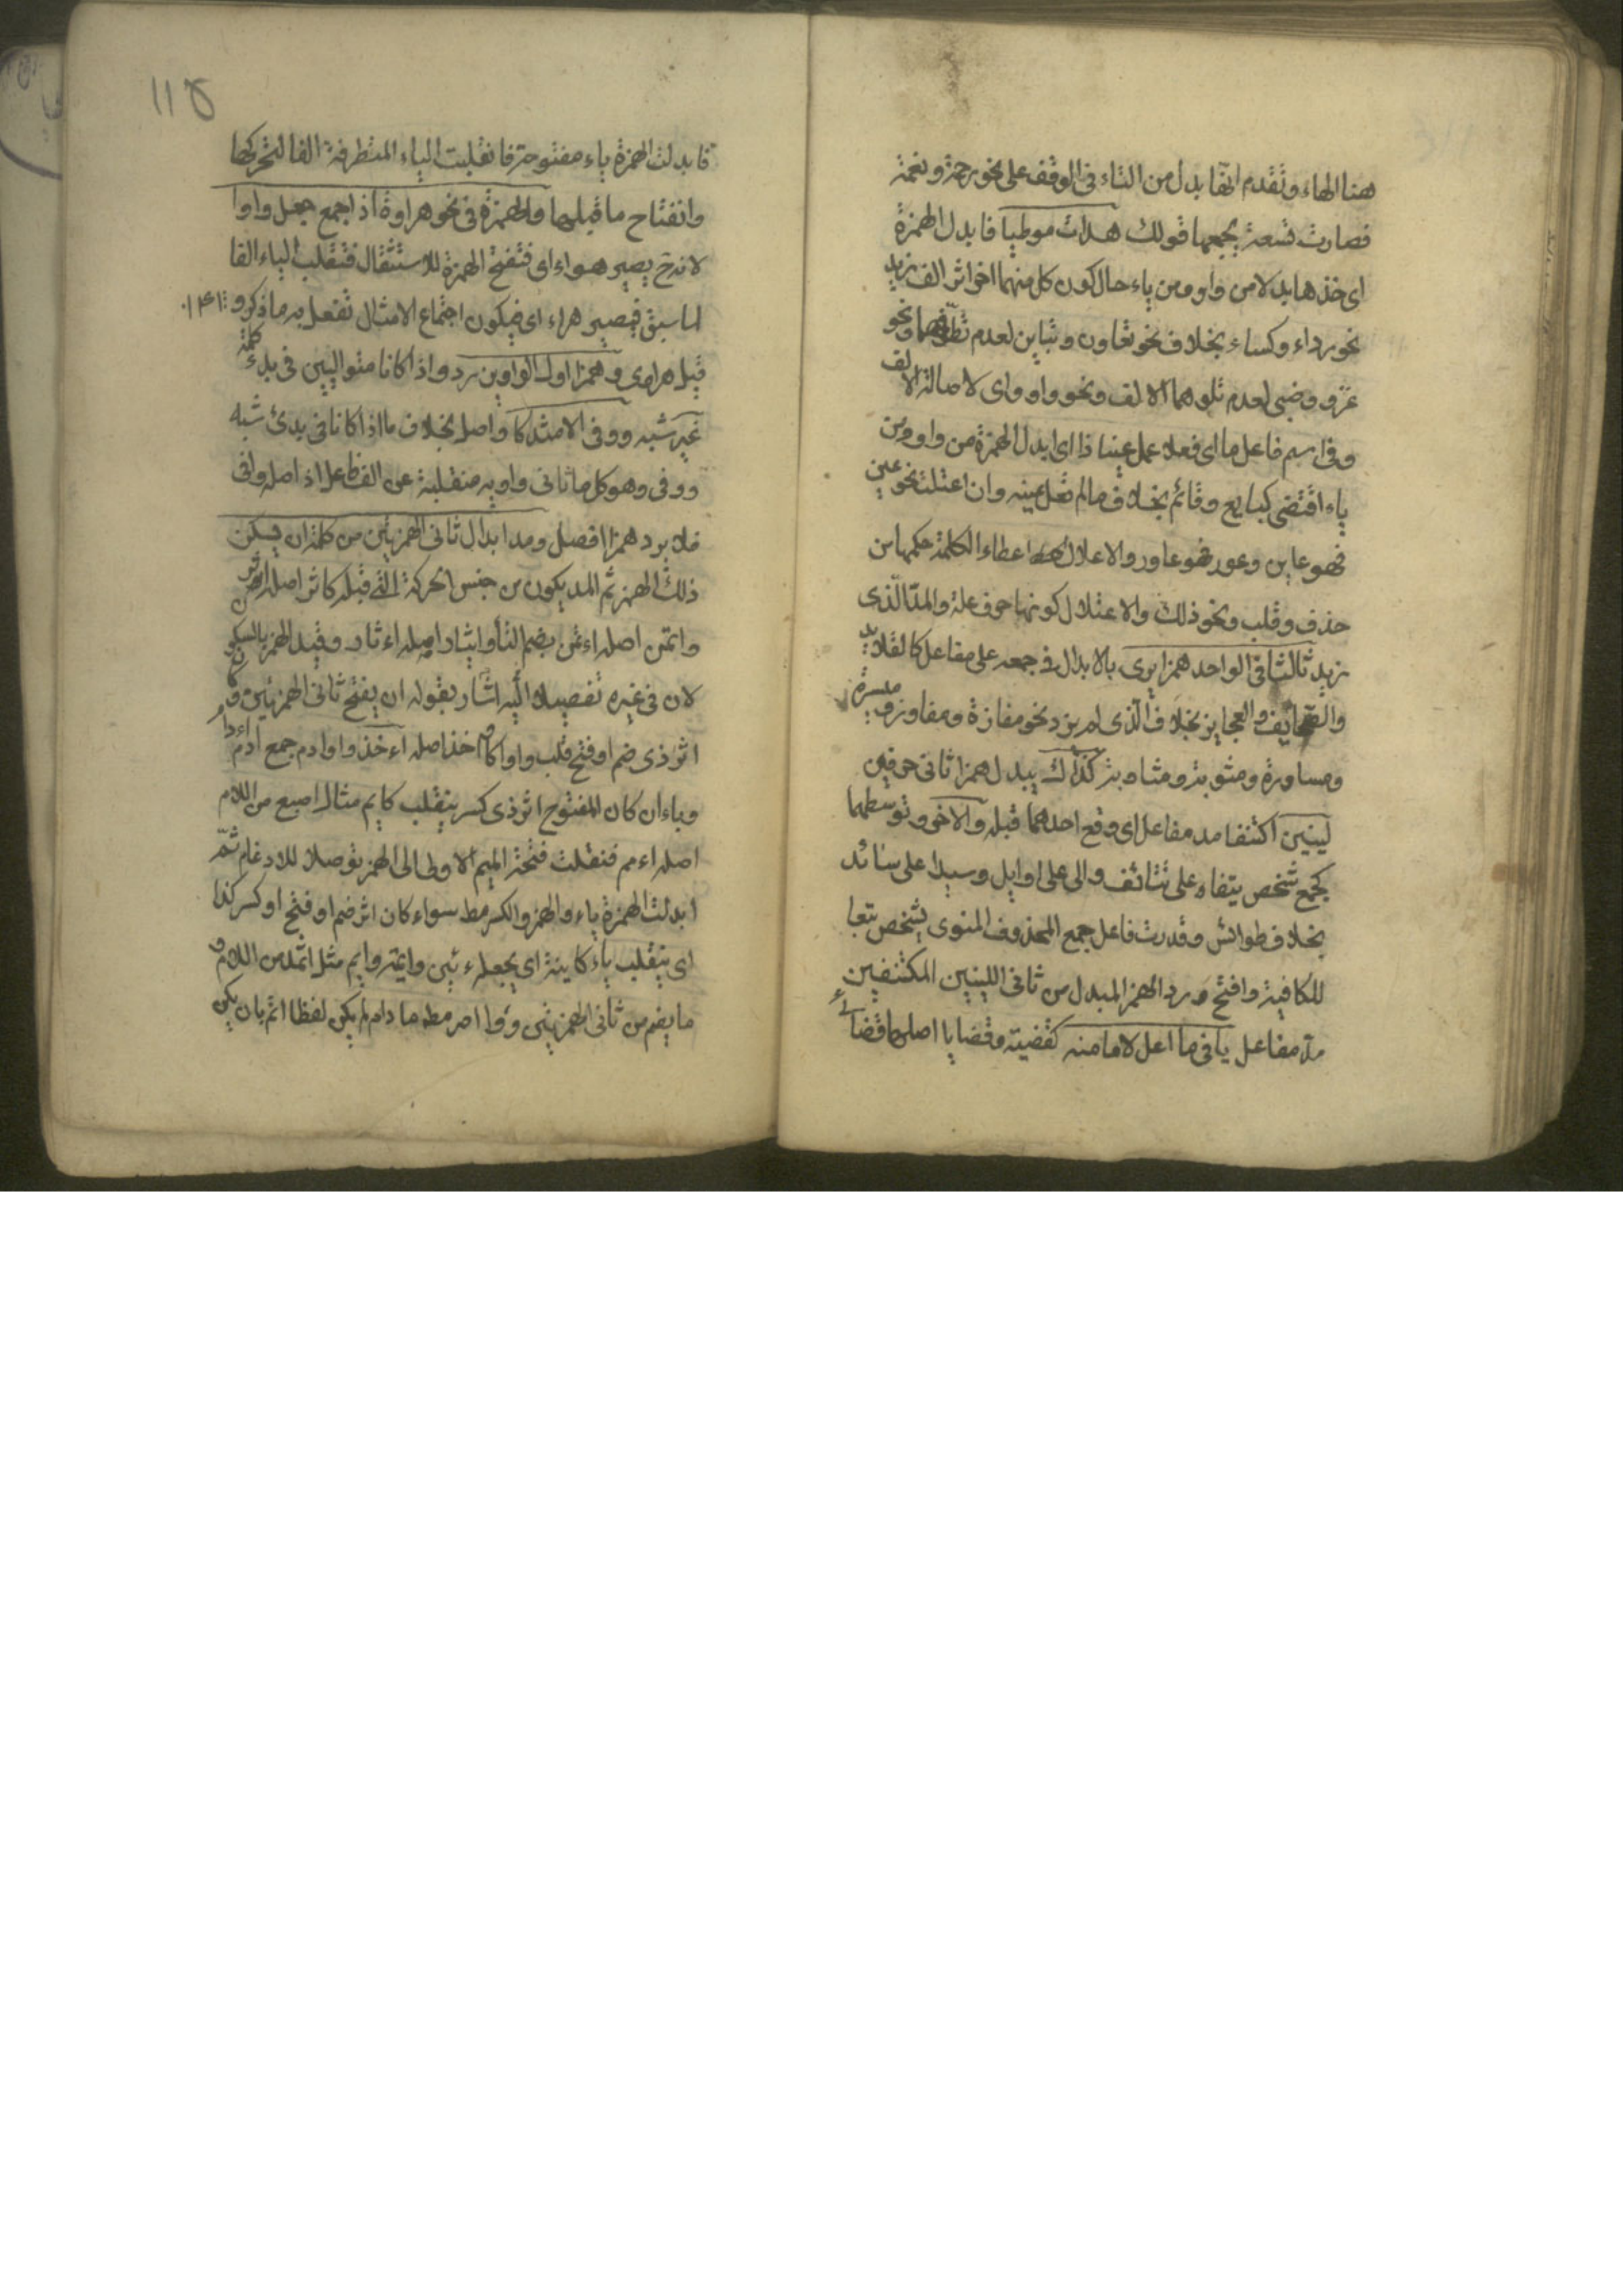 هنا الهاء وتقدم انها بدل من التاء فى الوقف على نحو رحمة ونعمة
فصارت تسعة يجمعها قولك هدأت موطيا فابدل الهمزة
اى خذها بدلا من واو ومن ياء حال كون كل منهما اخرا اثر الف زيد
نحو رداء وكساء بخلاف نحو تعاون وتباين لعدم تطرفهما ونحو
غزو وضبى لعدم تلوهما الالف ونحو واو واى لاصالة الالف
وفى اسم فاعل ما اى فعل اعل عينا ذا اى ابدل الهمزة من واو ومن
ياء اقتضى كبايع وقائم بخلاف ما لم تعل عينه وان اعتلت نحو عين
فهو عاين وعور فهو عاور والاعلال اعطاء الكلمة حكمها من
حذف وقلب ونحو ذلك والاعتلال كونها حرف علة والمد الذى
زيد ثالثا فى الواحد همزا يرى بالابدال فى جمعه على مفاعل كالقلايد
والصحايف والعجايز بخلاف الذى لم يزد نحو مفازة ومفاوز ومسيرة
ومساورة ومثوبة ومثاوبة كذاك يبدل همزا ثانى حرفين
لينين اكتنفا مد مفاعل اى وقع احدهما قبله والاخر وتوسطهما
كجمع شخص نيفا على نيائف والى على اوايل وسيدا على سيائد
بخلاف طوائس وقدرت فاعل جمع المحذوف المنوى بشخص تبعا
للكافية وافتح ورد الهمز المبدل من ثانى اللينين المكتنفين
مد مفاعل يا فى ما اعل لاما منه كقضية وقضايا اصلها قضائى
فابدلت الهمزة ياء مفتوحة فانقلبت الياء المتطرفة الفا لتحركها
وانفتاح ما قبلها والهمزة فى نحو هراوة اذا جمع جعل واوا
لانه ح يصير هراء اى فتفتح الهمزة للاستثقال فتقلب الياء الفا
لما سبق فيصير هراء اى فيكون اجتماع الامثال تفعل به ما ذكر و
قبل هراوى وهمزا اول الواوين رد واذا كانا متواليين فى بدء كلمة
غير شبه ووفى الاشد كاواصل بخلاف ما اذا كانا فى بدئ شبه
ووفى وهو كل ما ثانى واويه منقلبة عن الف فاعل اذ اصله وافى
فلا يرد همزا افصل ومدا ابدال ثانى الهمزتين من كلمة ان يسكن
ذلك الهمز ثم المد يكون من جنس الحركة التى قبله كاثر اصله اءثر
واتمن اصله اءتمن بضم التا وايثار اصله اءثار وقيد الهمز بالسكون
لان فى غيره تفصيلا اليه اشار بقوله ان يفتح ثانى الهمزتين و
اثر ذى ضم او فتح قلب واوا كاواخذ اصله اءخذ واوادم جمع ادم
وياء ان كان المفتوح اثر ذى كسر ينقلب كايم مثال اصبع من اللام
اصله اءمم فنقلت فتحة الميم الاولى الى الهمز توصلا للادغام ثم
ابدلت الهمزة ياء والهمز والكسر مط سواء كان اثر ضم او فتح او كسر كذا
اى ينقلب ياء كاينة اى يجعله يئن وايمة وايم مثل اثمد من اللام و
ما يضم من ثانى الهمزتين واوا اصر مط ما دام لم يكن لفظا اتم بان يكن